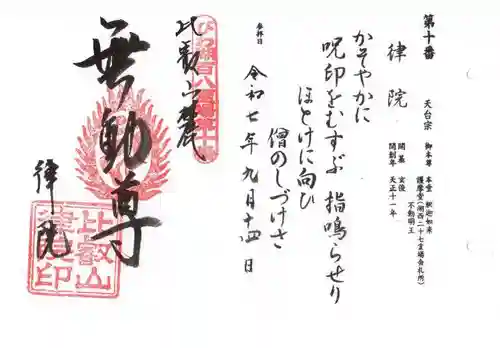 第十番
律院
天台宗
御本尊
本堂 釈迦如来
護摩堂(湖西二十七霊場古札所)
不動明王
開基 玄俊
開創年 天正十一年
かそやかに
呪印をむすぶ 指鳴らせり
ほとけに向ひ
僧のしづけさ
参拝日
令和七年九月十四日
比叡山麓
無動尊
律院